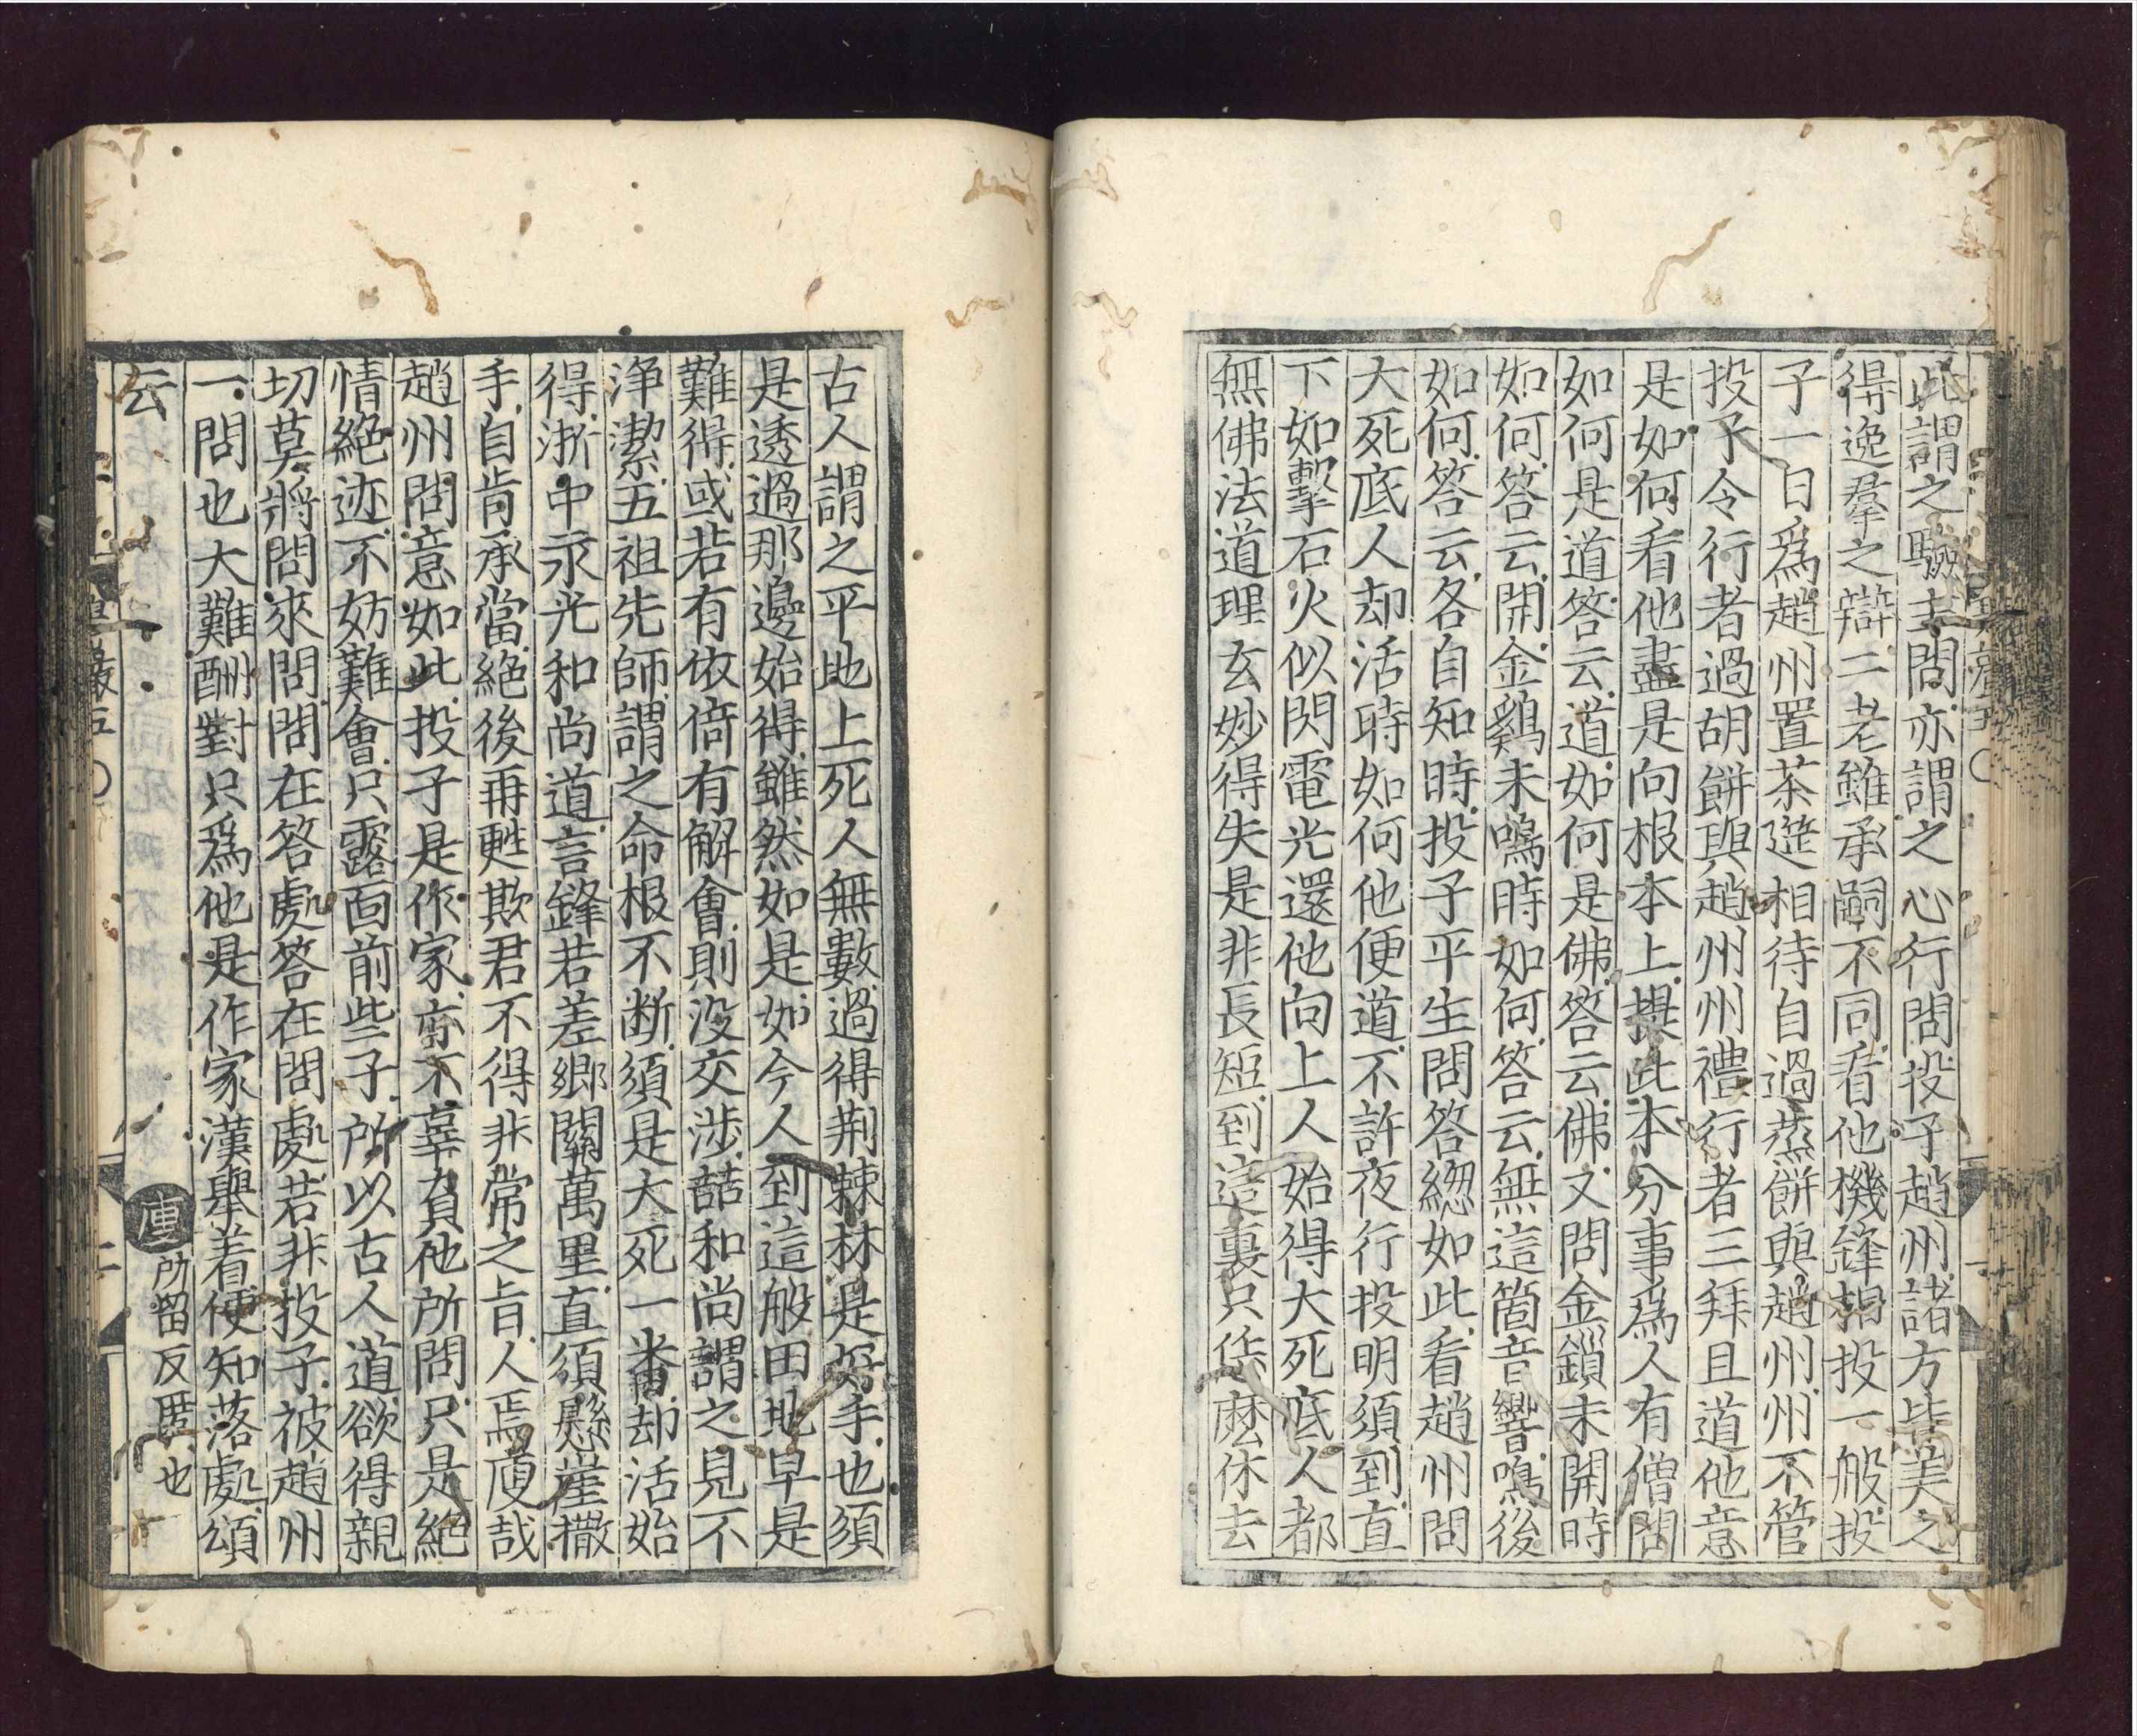 此謂之驗主問亦謂之心行問投子趙州諸方皆美之
得逸羣之辯二老雖承嗣不同看他機鋒相投一般投
子一日爲趙州置茶筵相待自過蒸餅與趙州州不管
投子令行者過胡餅與趙州州禮行者三拜且道他意
是如何看他盡是向根本上提此本分事爲人有僧問
如何是道答云道如何是佛答云佛又問金鎖未開時
如何答云開金鷄未鳴時如何答云無這箇音響鳴後
如何答云各自知時投子平生問答緫如此看趙州問
大死底人却活時如何他便道不許夜行投明須到直
下如擊石火似閃電光還他向上人始得大死底人都
無佛法道理玄妙得失是非長短到這裏只恁麽休去
古人謂之平地上死人無數過得荆棘林是好手也須
是透過那邊始得雖然如是如今人到這般田地早是
難得或若有依倚有解會則没交渉喆和尚謂之見不
浄潔五祖先師謂之命根不断須是大死一番却活始
得浙中永光和尚道言鋒若差鄉關萬里直須懸崖撒
手自肯承當絶後再甦欺君不得非常之旨人焉廋哉
趙州問意如此投子是作家亦不辜負他所問只是絶
情絶迹不妨難會只露面前些子所以古人道欲得親
切莫將問來問問在答處答在問處若非投子被趙州
一問也大難酬對只爲他是作家漢舉着便知落處頌
云
廋 所留反匿也